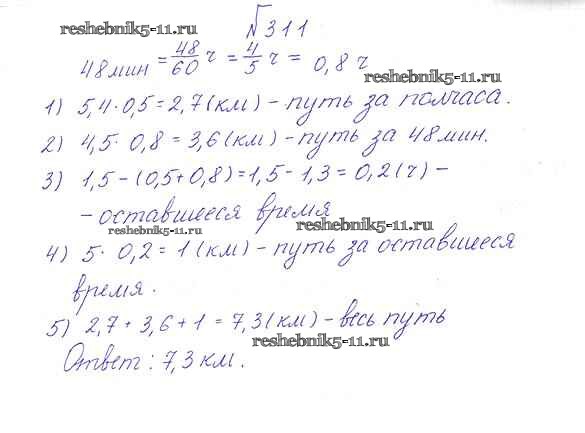 №311
reshebnik5-11.ru
48 мин = 48/60 ч = 4/5 ч = 0,8 ч
1) 5,4·0,5=2,7(км) – путь за полчаса.
2) 4,5·0,8=3,6(км) – путь за 48 мин.
3) 1,5–(0,5+0,8)=1,5–1,3=0,2(ч) –
– оставшееся время
reshebnik5-11.ru
reshebnik5-11.ru
4) 5·0,2=1(км) – путь за оставшееся
время.
5) 2,7+3,6+1=7,3(км) – весь путь
reshebnik5-11.ru
Ответ: 7,3 км.